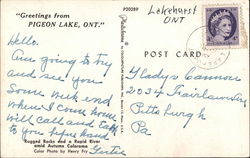 "Greetings from
PIGEON LAKE, ONT."
P20289
Lakehurst
ONT
POST CARD
Hello.
Am going to try
and see you
Some week end
when I come home
will call and talk
to you before hand
Gladys Cannon
2034 Fairlawn
Pittsburgh
Pa
Rugged Rocks and a Rapid River
amid Autumn Colorama
Color Photo by Henry Fry